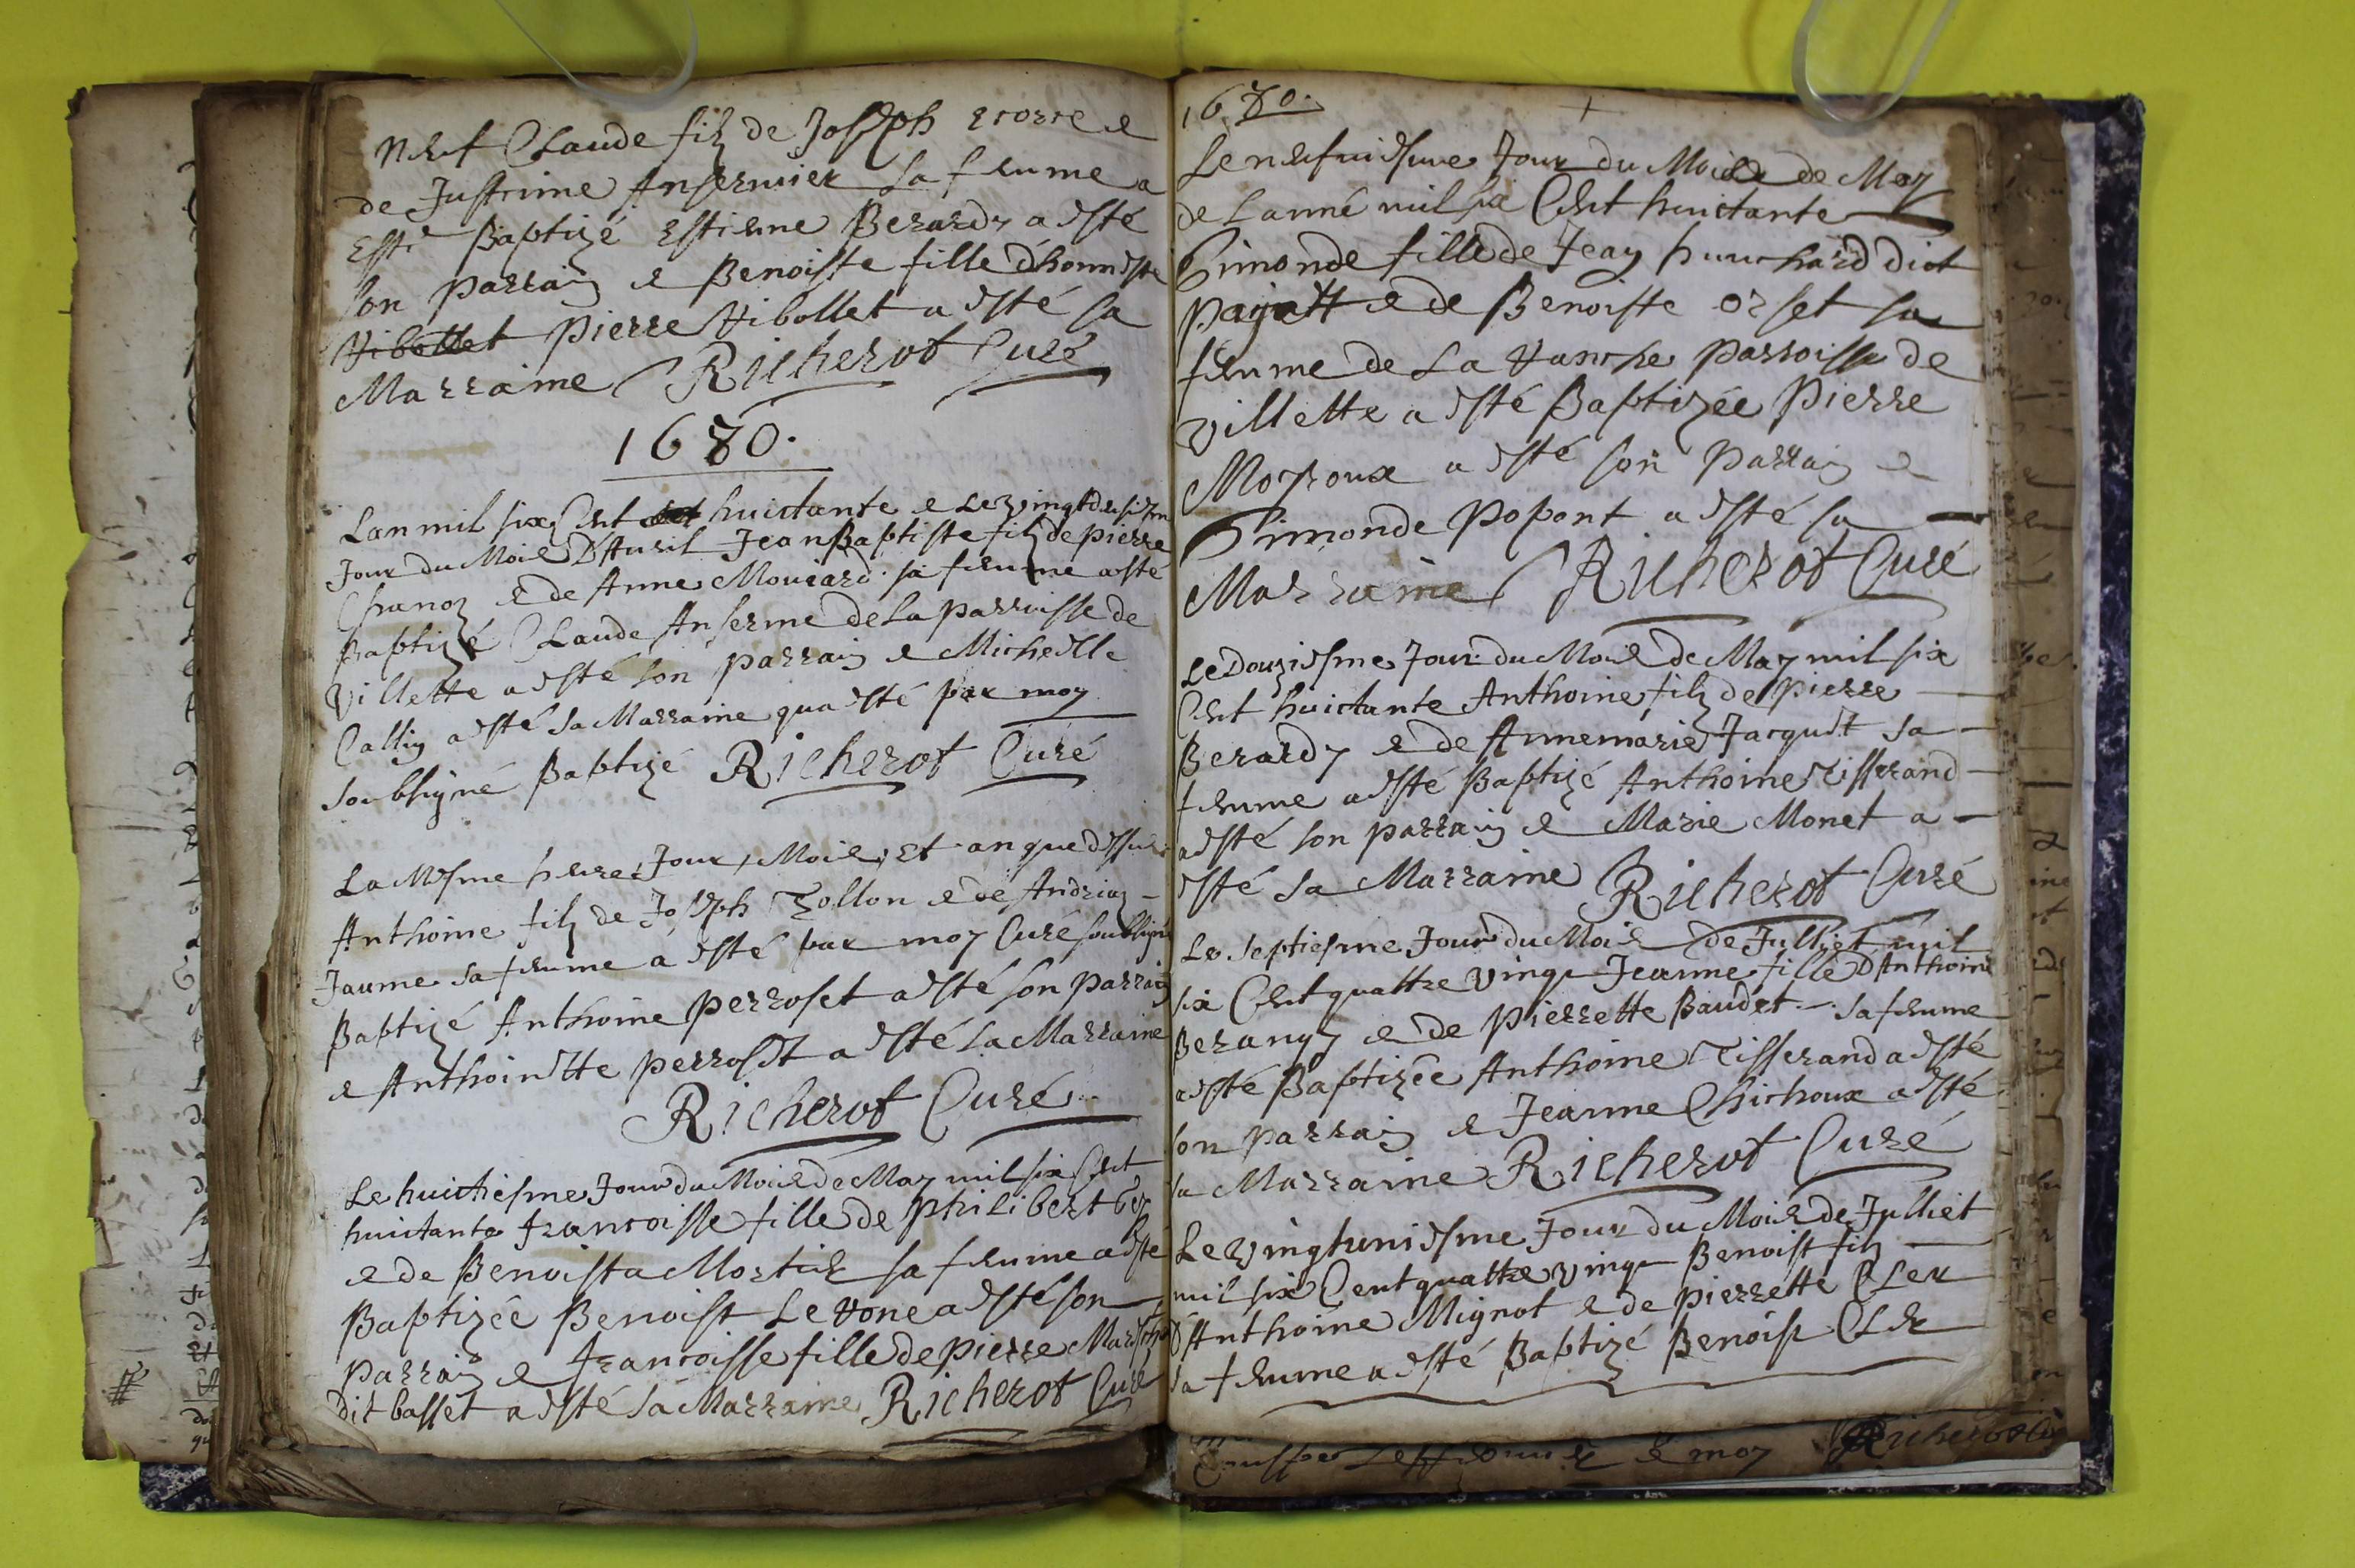 Neuf Claude filz de Joseph
de Justrime Ansermier sa femme a
Esté Baptizé Estienne Berardy a esté
son parrain e Benoiste fille d'honneste
Vibollet pierre Vibollet a esté sa
Marraine Richerot Curé
1680.
Lan mil six Cent huictante e le vingtdeusiem
Jour du Mois D'Auril Jean Baptiste filz de pierre
Chanoz e de Anne Mouard sa femme a esté
Baptizé Claude Anserme de la parroisse de
Villette a esté son parrain e Michelle
Callin a esté sa Marraine qua esté par moy
soubsigné Baptizé Richerot Curé
La Mesme heure, Jour, Mois, Et an que dessus
Anthoine filz de Joseph Tollon e de Andriaz
Jaume sa femme a esté par moy Curé soubsigné
Baptizé Anthoine perroset a esté son parrain
e Anthoinette perroset a esté sa Marraine
Richerot Curé
Le huictiesme Jour du Mois de May mil six Cent
huictante francoisse fille de philibert
e de Benoista Mortier sa femme a esté
Baptizée Benoist Levone a esté son
parrain e francoisse fille de pierre
dit basset a esté sa Marraine Richerot Curé
1680.
Le neufuiesme Jour du Mois de May
de Lanné mil six Cent huictante
Simonde fille de Jean huuchard dict
payatt e de Benoiste orset sa
femme de La Vanche parroisse de
Villette a esté Baptizée pierre
Moyroux a esté son parrain e
Simonde popont a esté sa
Marraine Richerot Curé
Le Douziesme Jour du Mois de May mil six
Cent huictante Anthoine filz de pierre
Berardy e de Annemarie Jacquet sa
femme a esté Baptizé Anthoine Tisserand
a esté son parrain e Marie Monet a
esté sa Marraine Richerot Curé
Le septiesme Jour du Mois de Julliet mil
six Cent quattre vingt Jeanne fille D'Anthoine
Berangy e de pierrette Baudet sa femme
a esté Baptizée Anthoine Tisserand a esté
son parrain e Jeanne Chichoux a esté
sa Marraine Richerot Curé
Le vingtuniesme Jour du Mois de Julliet
mil six Cent quattre vingt Benoist filz
D'Anthoine Mignot e de pierrette Cler
sa femme a esté Baptizé Benoist Cler
e moy Richerot